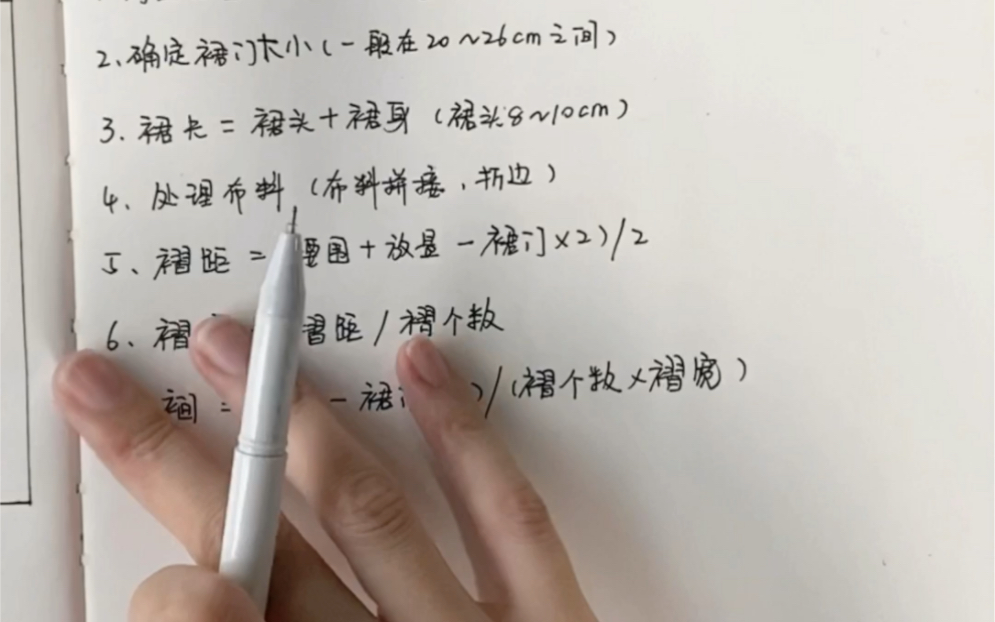 2、确定裙门大小(一般在20~26cm之间)
3. 裙长 = 裙头 + 裙身 (裙头8~10cm)
4、处理布料 (布料拼接、折边)
5、褶距 = 腰围 + 放量 - 裙门×2)/2
6、褶 褶距 / 褶个数
间 = - 裙 )/(褶个数×褶宽)